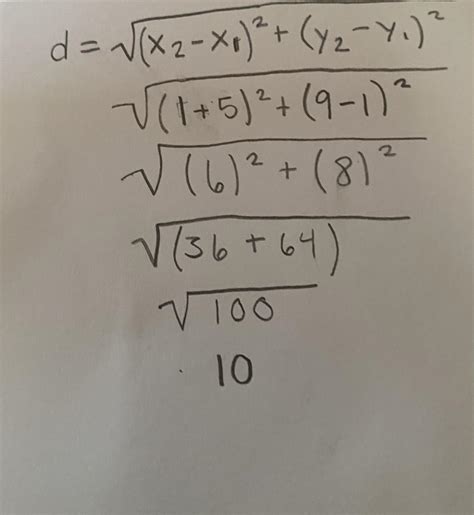 d = √(x₂ - x₁)² + (y₂ - y₁)²
√(1+5)² + (9-1)²
√(6)² + (8)²
√(36 + 64)
√100
10